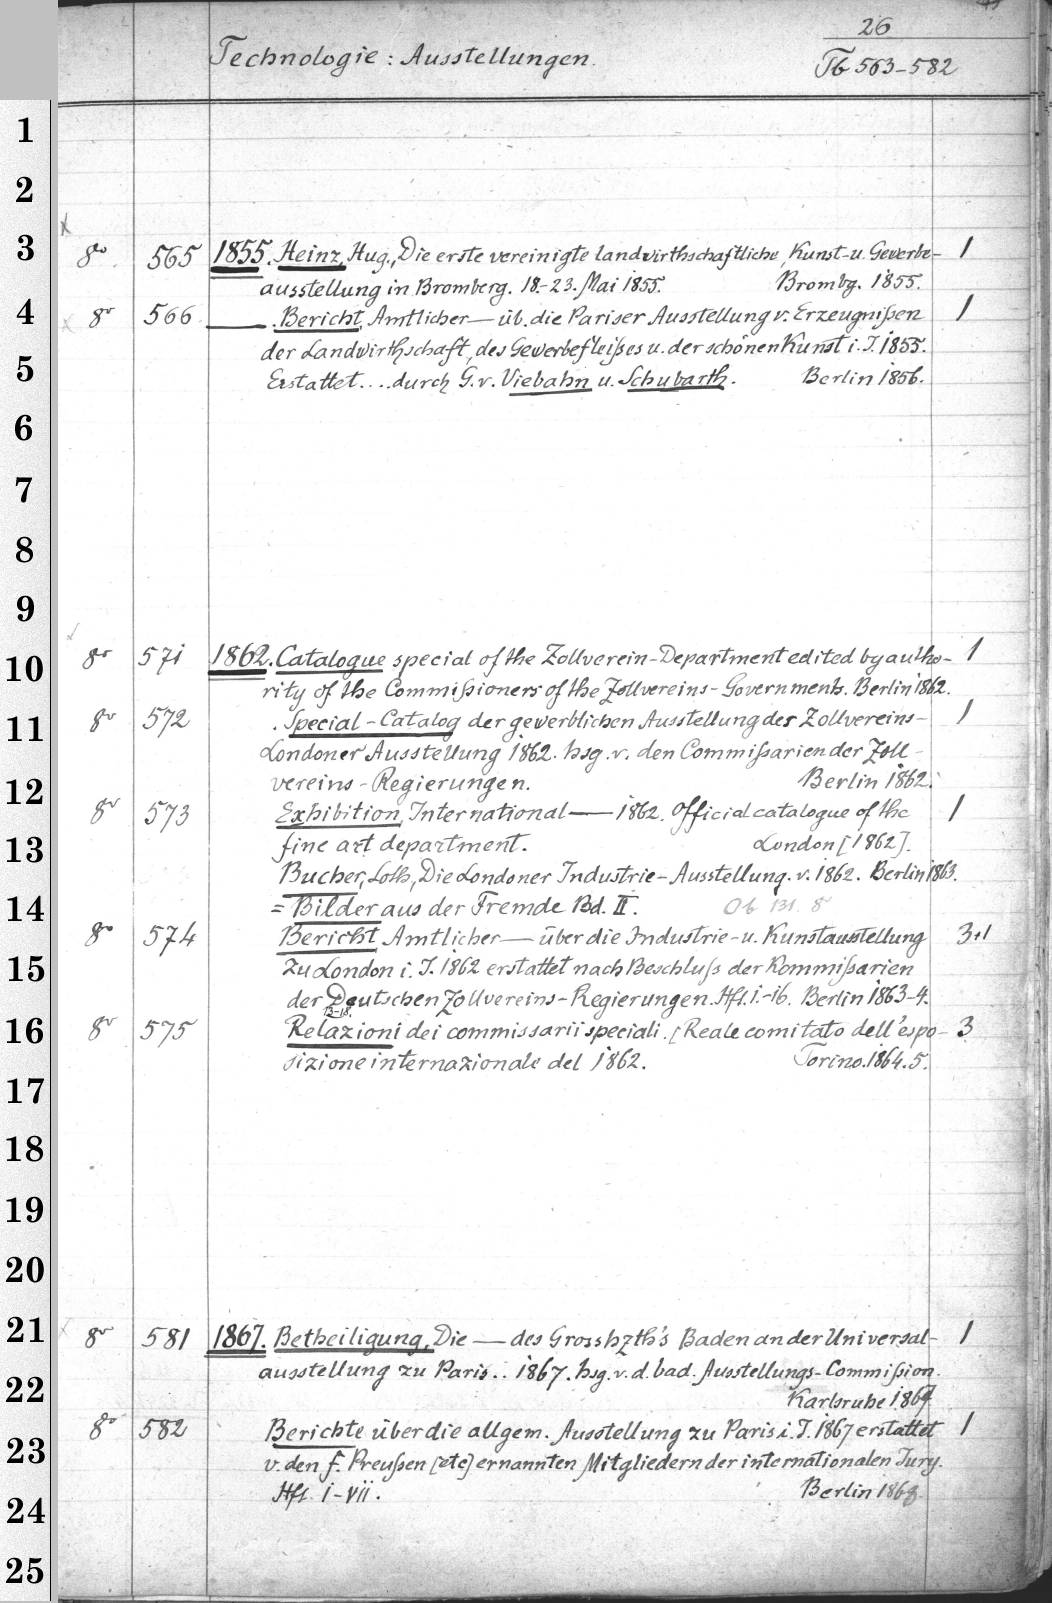 26
Technologie: Ausstellungen.
Tb 563-582
1
2
3
8o 565 1855. Heinz, Hug., Die erste vereinigte landwirthschaftliche, Kunst- u. Gewerbe- 1
ausstellung in Bromberg. 18.-23. Mai 1855. Brombg. 1855.
4
8o 566 ——. Bericht, Amtlicher — üb. die Pariser Ausstellung v. Erzeugnißen 1
der Landwirthschaft, des Gewerbefleißes u. der schönen Kunst i. J. 1855.
5
Erstattet .... durch G. v. Viebahn u. Schubarth. Berlin 1856.
6
7
8
9
10
8o 571 1862. Catalogue special of the Zollverein-Department edited by autho- 1
rity of the Commißioners of the Zollvereins-Governments. Berlin 1862.
11
8o 572 . Special-Catalog der gewerblichen Ausstellung des Zollvereins- 1
Londoner Ausstellung 1862. hsg. v. den Commißarien der Zoll-
12
vereins-Regierungen. Berlin 1862.
8o 573 Exhibition, International — 1862. Official catalogue of the 1
13
fine art department. London [1862].
Bucher, Loth., Die Londoner Industrie-Ausstellung. v. 1862. Berlin 1863.
14
= Bilder aus der Fremde Bd. II. Ob 131. 8
8o 574 Bericht, Amtlicher — über die Industrie- u. Kunstausstellung 3+1
15
zu London i. J. 1862 erstattet nach Beschluß der Kommißarien
der Deutschen Zollvereins-Regierungen. Hft. i.-16. Berlin 1863-4.
13-18.
16
8o 575 Relazioni dei commissarii speciali. [Reale comitato dell'espo- 3
sizione internazionale del 1862. Torino. 1864. 5.
17
18
19
20
21
8o 581 1867. Betheiligung, Die — des Grosshzth's Baden an der Universal- 1
ausstellung zu Paris .. 1867. hsg. v. d. bad. Ausstellungs-Commißion.
22
Karlsruhe 1867
8o 582 Berichte über die allgem. Ausstellung zu Paris i. J. 1867 erstattet 1
23
v. den f. Preußen [etc] ernannten Mitgliedern der internationalen Jury.
24
Hft. i-vii. Berlin 1868
25